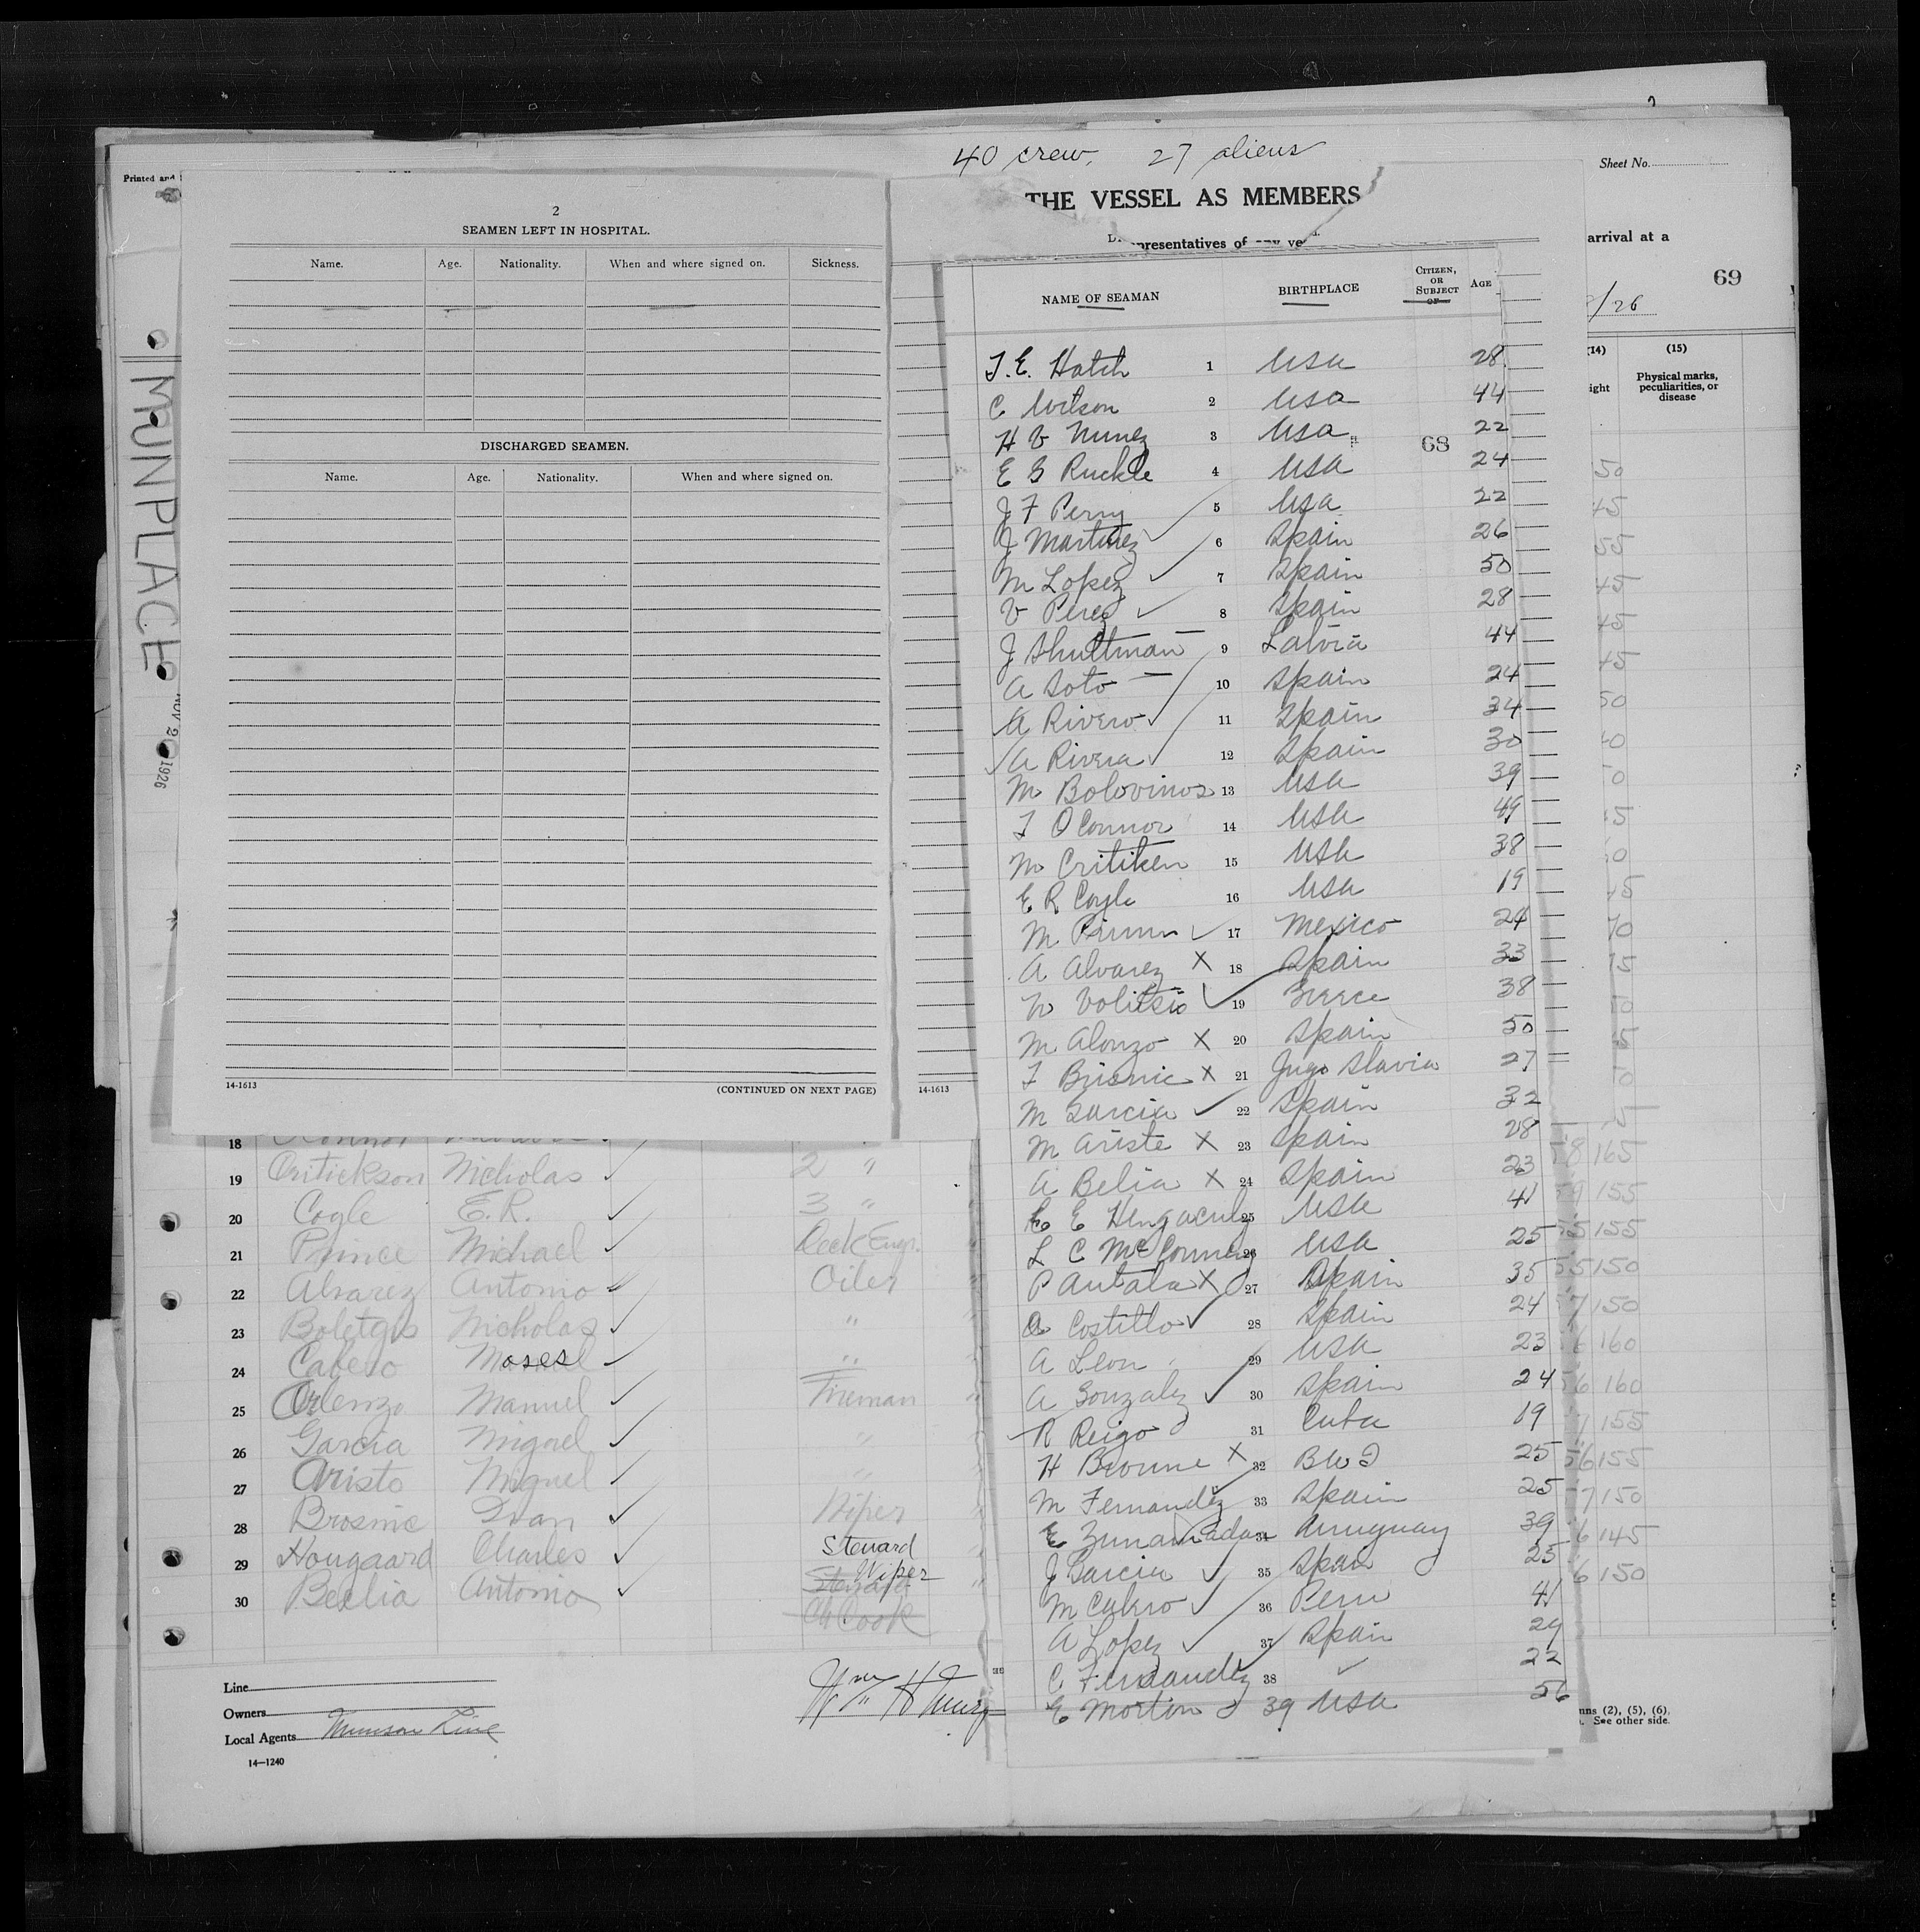 40 crew, 27 aliens
Sheet No.
Printed and
THE VESSEL AS MEMBERS
presentatives of any ve
arrival at a
69
/26
2
SEAMEN LEFT IN HOSPITAL.
Name. Age. Nationality. When and where signed on. Sickness.
DISCHARGED SEAMEN.
Name. Age. Nationality. When and where signed on.
14-1613 (CONTINUED ON NEXT PAGE)
14-1613
MUNPLACE
NOV 2 1926
NAME OF SEAMAN BIRTHPLACE CITIZEN, OR SUBJECT OF AGE
(14) (15)
ight Physical marks, peculiarities, or disease
68
T. E. Hatch 1 USA 28
C Wilson 2 USA 44
H V Nunez 3 USA 22
E G Ruckle 4 USA 24
J F Perry 5 USA 22
J Martinez 6 Spain 26
M Lopez 7 Spain 50
V Perez 8 Spain 28
J Shultman 9 Latvia 44
A Soto 10 Spain 24
A Rivero 11 Spain 34
A Rivera 12 Spain 30
M Bolovinos 13 USA 39
T OConnor 14 USA 49
M Critiken 15 USA 38
E R Cogle 16 USA 19
M 17 Mexico 24
A Alvarez X 18 Spain 33
N Volitsis 19 Greece 38
M Alonzo X 20 Spain 50
I Brisnic X 21 Jugo Slavia 27
M Garcia 22 Spain 32
M Ariste X 23 Spain 28
A Belia X 24 Spain 23
E 25 USA 41
L C 26 USA 25
P Antala X 27 Spain 35
A Costillo 28 Spain 24
A Leon 29 USA 23
A Gonzalez 30 Spain 24
R Reigo 31 Cuba 19
H Browne X 32 B W I 25
M Fernandez 33 Spain 25
E 34 Uruguay 39
J Garcia 35 Spain 25
M Calero 36 Peru 41
A Lopez 37 Spain 29
C Fernandez 38 22
E Morton 39 USA 56
18
19 Critickson Nicholas 2 "
20 Cogle E. R. 3 "
21 Prince Michael Deck Engr.
22 Alvarez Antonio Oiler
23 Boletgis Nicholas "
24 Calero Moses "
25 Orlenzo Manuel Fireman
26 Garcia Miguel "
27 Aristo Miguel "
28 Brosnic Ivan Wiper
29 Hougaard Charles Steward
30 Beelia Antonio Wiper
Ch Cook
165
155
155
150
150
160
160
155
155
150
145
150
Line
Owners
Local Agents Munson Line
14—1240
Wm H
mns (2), (5), (6).
See other side.